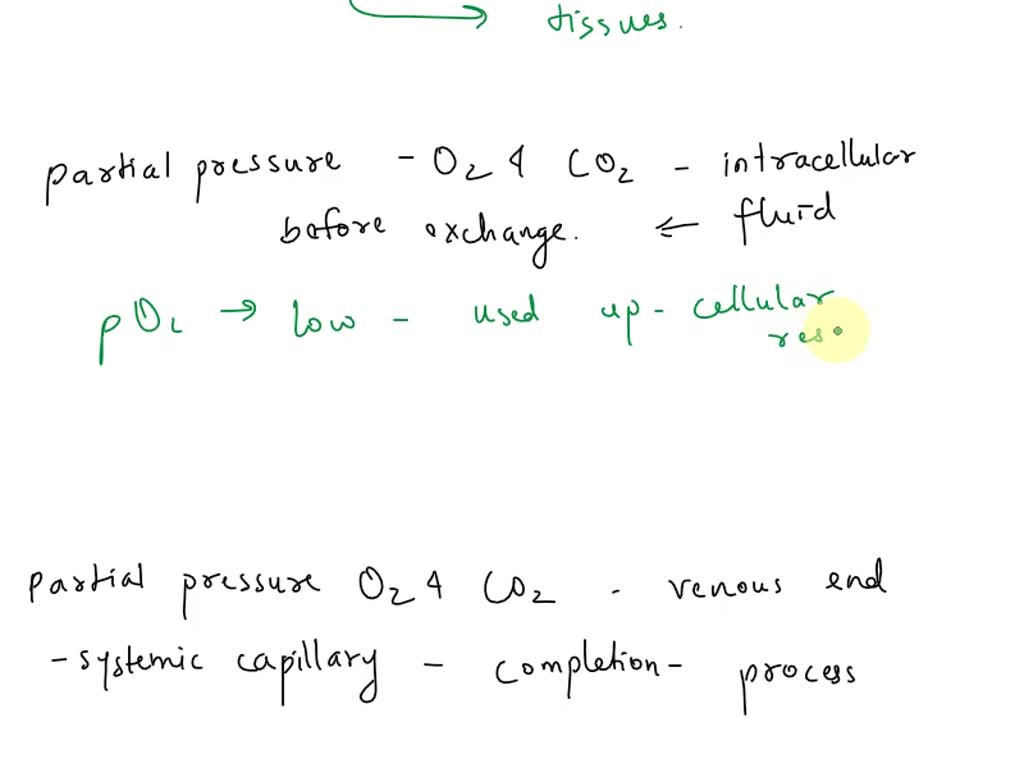 tissues.
partial pressure - O₂ & CO₂ - intracellular
before exchange. ← fluid
pO₂ → low - used up - cellular
res
Partial pressure O₂ & CO₂ - venous end
- systemic capillary - completion - process